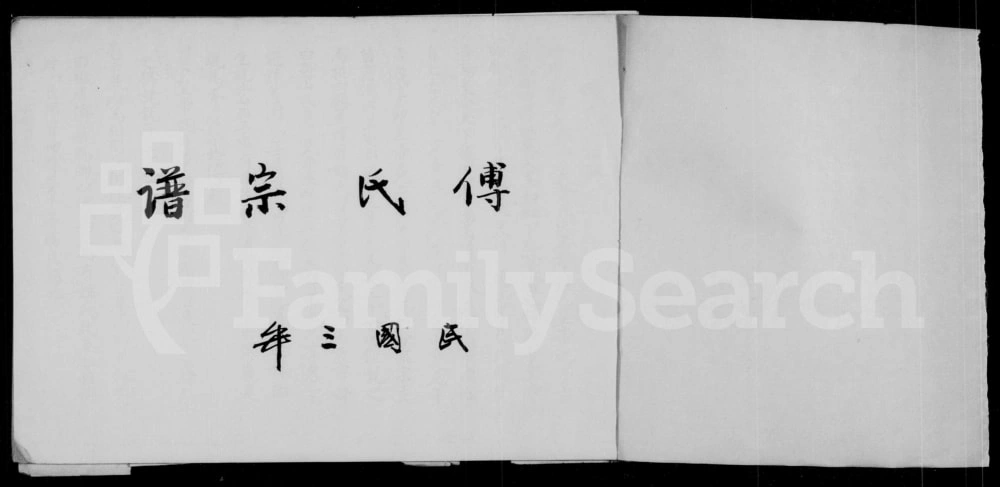 傅氏宗譜
民國三年
FamilySearch